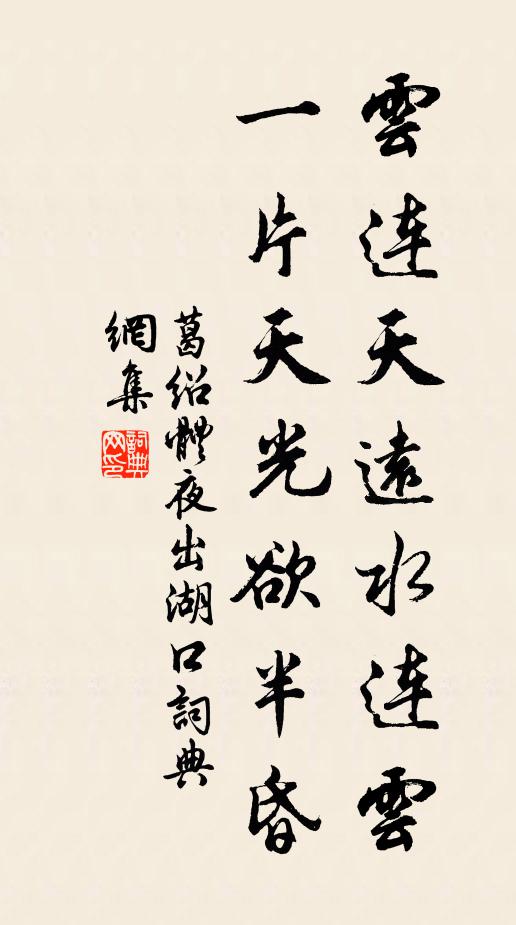 雲連天遠水連雲
一片天光欲半昏
葛紹體夜出湖口詞典
網集
詞典网印